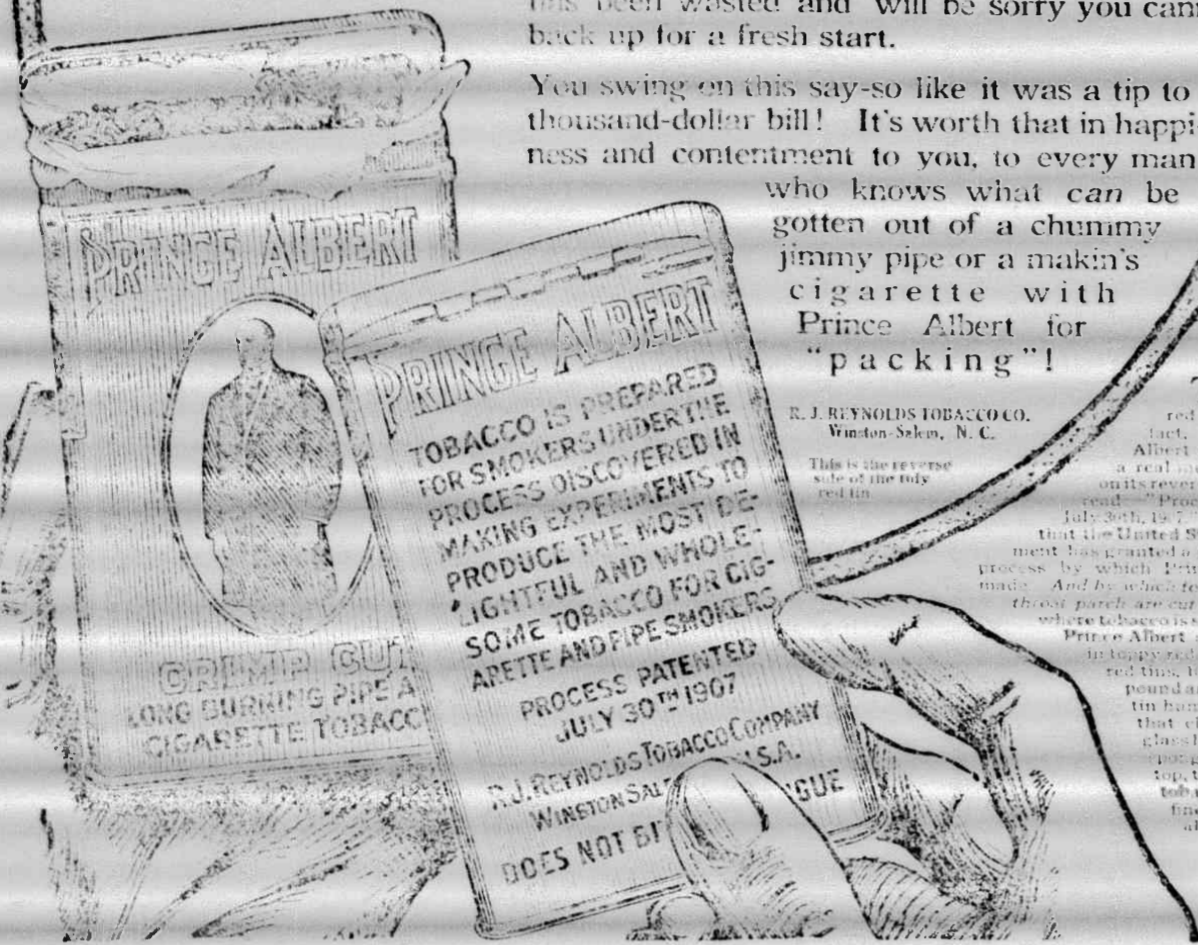 has been wasted and will be sorry you
back up for a fresh start.
You swing on this say-so like it was a tip to
thousand-dollar bill! It's worth that in happi-
ness and contentment to you, to every man
who knows what can be
gotten out of a chummy
jimmy pipe or a makin's
cigarette with
Prince Albert for
"packing"!
R. J. REYNOLDS TOBACCO CO.
Winston-Salem, N. C.
This is the reverse
side of the tidy
red tin
PRINCE ALBERT
CRIMP CUT
LONG BURNING PIPE A
CIGARETTE TOBACC
PRINCE ALBERT
TOBACCO IS PREPARED
FOR SMOKERS UNDER THE
PROCESS DISCOVERED IN
MAKING EXPERIMENTS TO
PRODUCE THE MOST DE-
LIGHTFUL AND WHOLE-
SOME TOBACCO FOR CIG-
ARETTE AND PIPE SMOKERS
PROCESS PATENTED
JULY 30TH 1907
R.J. REYNOLDS TOBACCO COMPANY
WINSTON SAL U.S.A.
DOES NOT BI GUE
red
fact,
Albert
a real
on its rever
read: "Proc
July 30th, 1907
that the United S
ment has granted a
process by which Prin
made. And by which
throat parch are cut
where tobacco is s
Prince Albert
in toppy red
red tins,
pound a
tin hum
that
glass
top,
fin